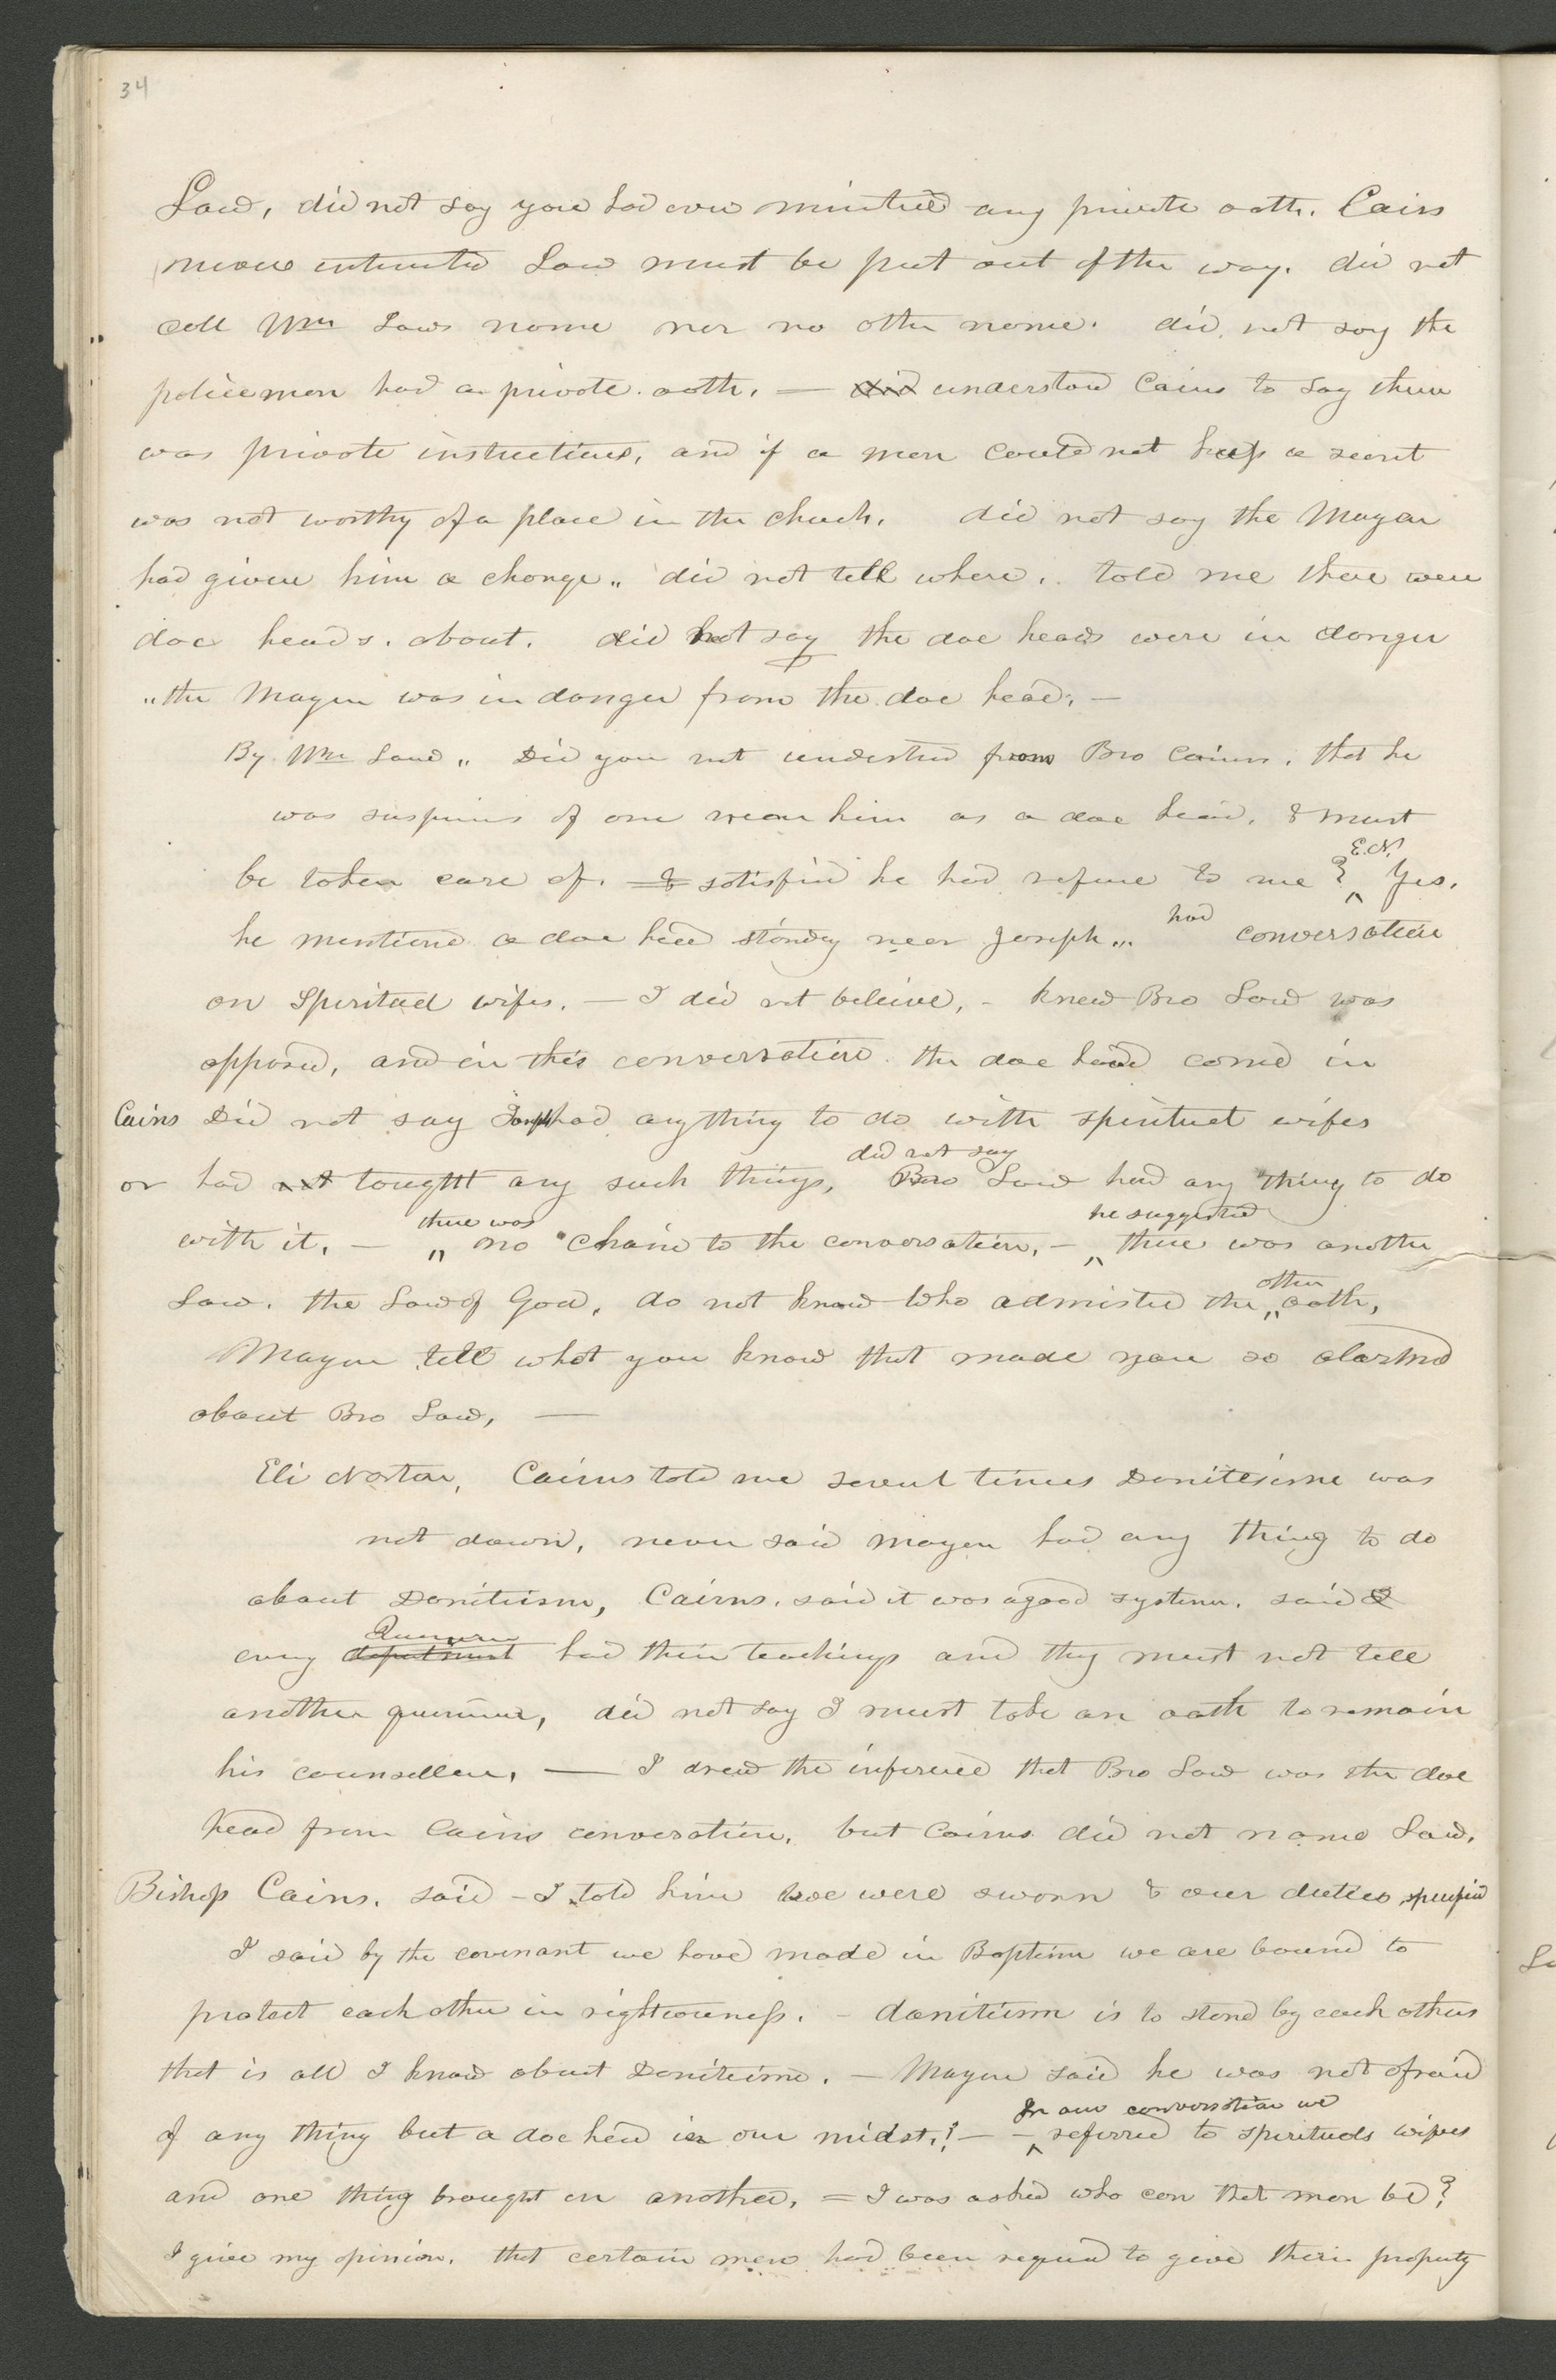 34
Law, did not say you had ever mintred any private oath. Cairs
never intimated Law must be put out of the way. did not
call Wm Laws name nor no other name. did not say the
policemen had a private oath. — did understand Cairns to say there
was private instructions, and if a man could not keep a secret
was not worthy of a place in the church. did not say the Mayor
had given him a charge. „ did not tell where. told me there were
doe heads. about. did not say the doe heads were in danger
„ the Mayor was in danger from the doe head. —
By. Wm Law „ Did you not understand from Bro Cairns. that he
was suspicious of one near him as a doe head, & must
be taken care of. & satisfied he had refrence to me? E. N. Yes.
he mentiond a doe head standing near Joseph „ had conversation
on Spiritual wifes. — I did not beleive, - knew Bro Law was
opposed, and in this conversation the doe head came in
Cairns Did not say Joseph had anything to do with spiritual wifes
did not say
or had not taught any such things, Bro Law had any thing to do
there was he suggested
with it. — „ no chain to the conversation. — there was another
other
Law. the Law of God, do not know who admisted the „ oath,
Mayor tell what you know that made you so alarmed
about Bro Law, —
Eli Norton, Cairns told me several times Daniteisme was
not down, never said mayor had any thing to do
about Danitism, Cairns. said it was a good system. said &
Quorum
every department had their teachings and they must not tell
another quorum, did not say I must take an oath to remain
his counsellor. — I drew the inference that Bro Law was the doe
head from Cairns conversation, but Cairns did not name Law.
Bishop Cairns. said - I told him we were sworn & our duties specified
I said by the covenant we have made in Baptism we are bound to
protect each other in righteousness. - danitism is to stand by each other
that is all I know about Daniteism. — Mayor said he was not afraid
In our conversation we
of any thing but a doe head in our midst,! — - referred to spirituals wifes
and one thing brought on another, = I was asked who can that man be?
I give my opinion. that certain men had been required to give their property